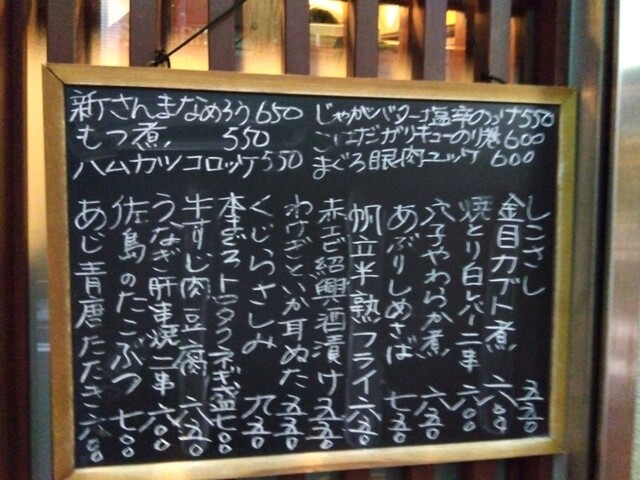 新さんまなめろう650
もつ煮 550
ハムカツコロッケ550
じゃがバター塩辛のっけ550
こはだガリキューのり巻600
まぐろ眼肉ユッケ 600
しこさし 五五〇
金目カブト煮 六八〇
焼とり白レバー二串 六〇〇
穴子やわらか煮 六五〇
あぶりしめさば 七五〇
帆立半熟フライ 六五〇
赤エビ紹興酒漬け 五五〇
わけぎといか耳ぬた 五五〇
くじらさしみ 九五〇
本まぐろトロタクネギ盛 七〇〇
牛すじ肉豆腐 六五〇
うなぎ肝串焼二串 六〇〇
佐島のたこぶつ 七〇〇
あじ青唐たたき 六八〇